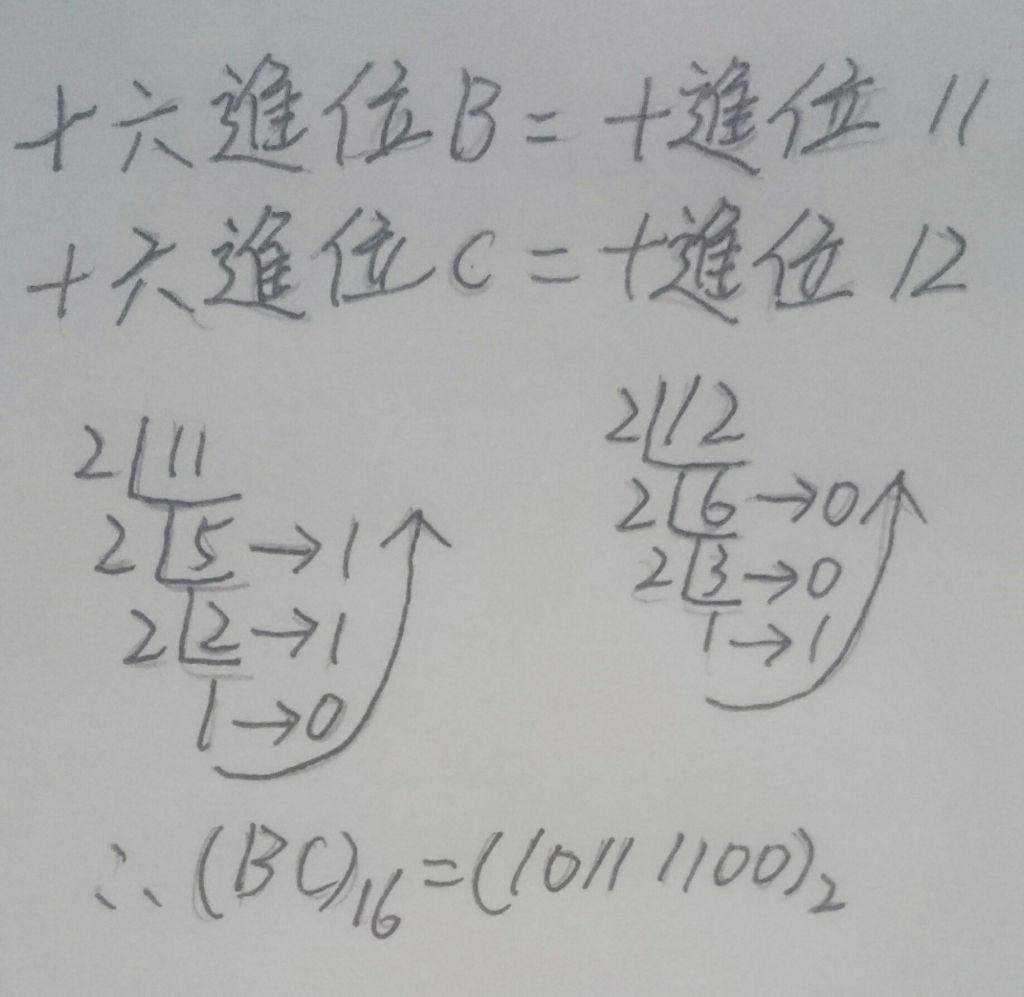 十六進位B=十進位 11
十六進位C=十進位 12
2 11
2 5→1
2 2→1
1→0
2 12
2 6→0
2 3→0
1→1
∴(BC)16=(1011 1100)2